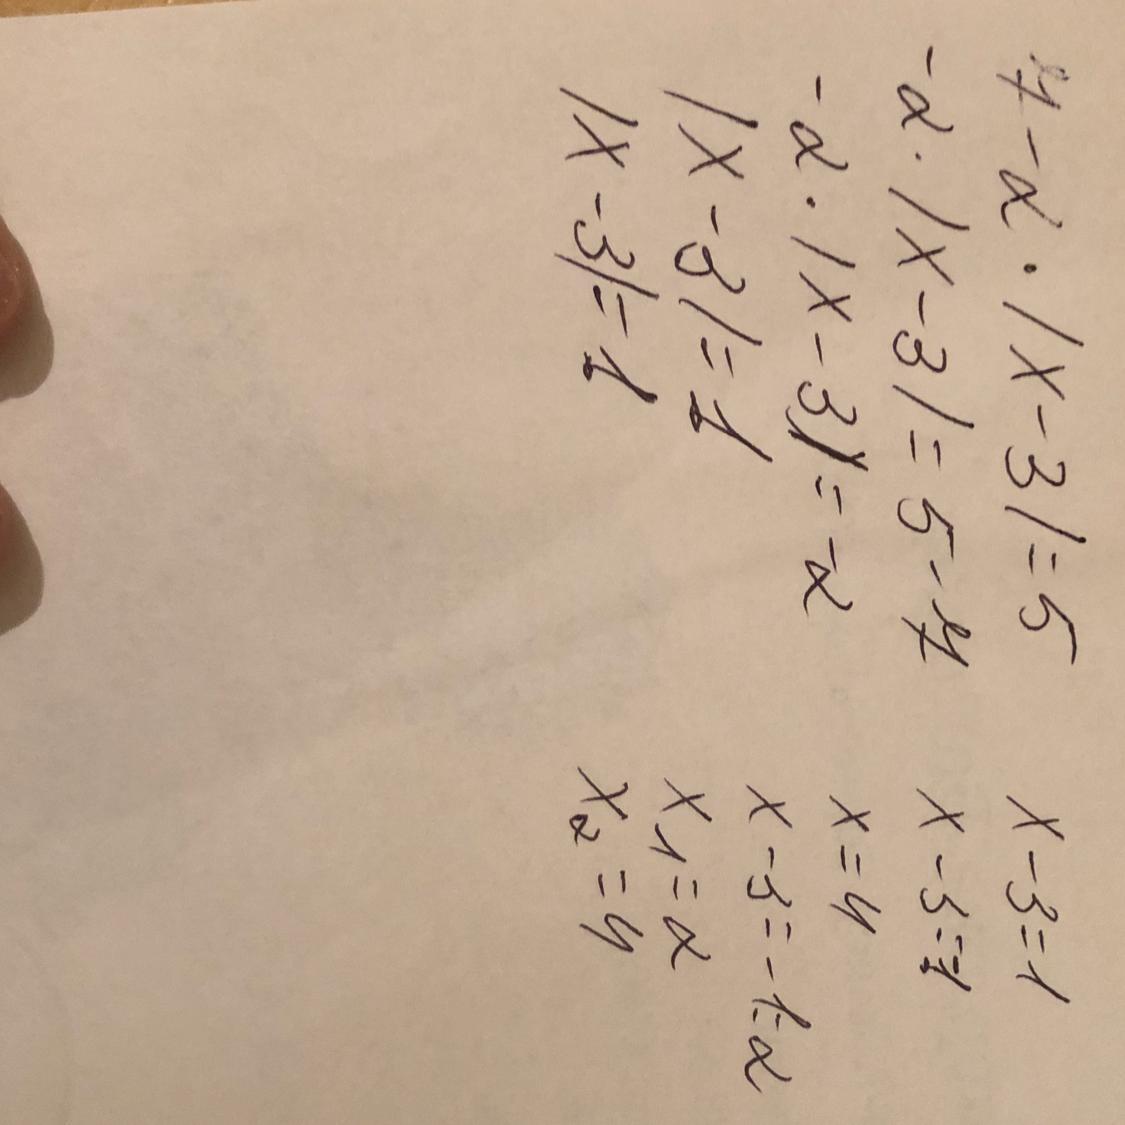 7-2·|x-3|=5
-2·|x-3|=5-7
-2·|x-3|=-2
|x-3|=1
|x-3|=1
x-3=1
x-3=-1
x=4
x-3=-1=2
x₁=2
x₂=4